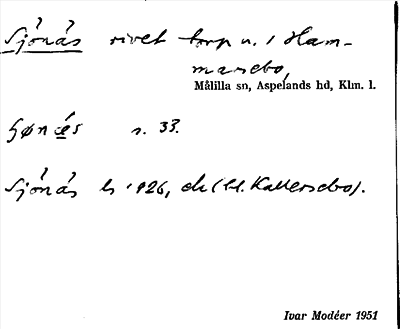 Sjönås rivet torp u. i Ham-
marsebo,
Målilla sn, Aspelands hd, Klm. l.
s. 33.
Sjönås b 1926, ek (bl. Kallersebo).
Ivar Modéer 1951